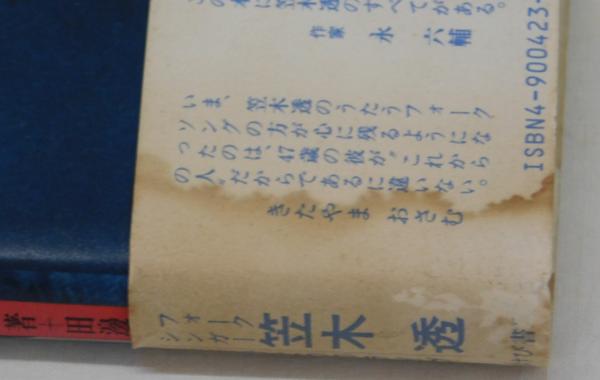 の本に笠木透のすべてがある。
作家 永 六輔
いま、笠木透のうたうフォーク
ソングの方が心に残るようにな
ったのは、47歳の彼が“これから
の人”だからであるに違いない。
きたやま おさむ
ISBN4-900423-
フォーク
シンガー
笠木 透
著